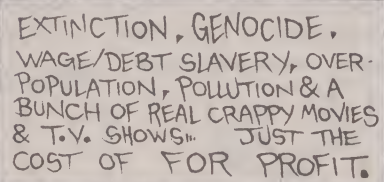 EXTINCTION, GENOCIDE,
WAGE/DEBT SLAVERY, OVER-
POPULATION, POLLUTION & A
BUNCH OF REAL CRAPPY MOVIES
& T.V. SHOWS... JUST THE
COST OF FOR PROFIT.